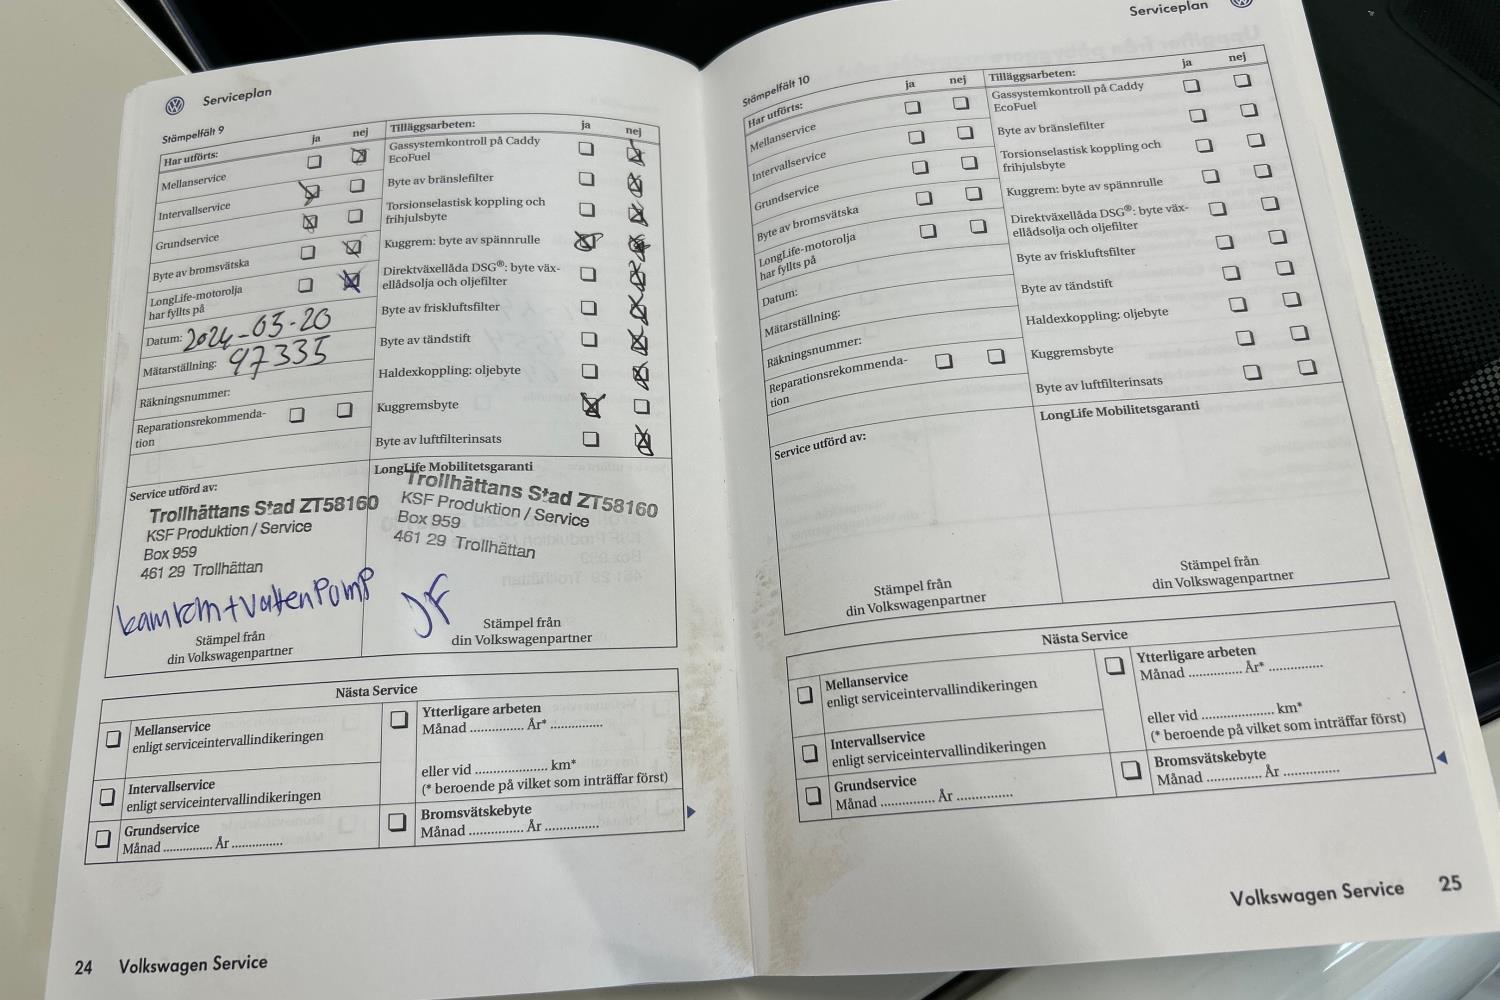 Serviceplan
Stämpelfält 9
Har utförts: ja nej
Mellanservice
Intervallservice
Grundservice
Byte av bromsvätska
LongLife-motorolja
har fyllts på
Datum: 2024-03-20
Mätarställning: 97335
Räkningsnummer:
Reparationsrekommenda-
tion
Tilläggsarbeten: ja nej
Gassystemkontroll på Caddy
EcoFuel
Byte av bränslefilter
Torsionselastisk koppling och
frihjulsbyte
Kuggrem: byte av spännrulle
Direktväxellåda DSG®: byte väx-
ellådsolja och oljefilter
Byte av friskluftsfilter
Byte av tändstift
Haldexkoppling: oljebyte
Kuggremsbyte
Byte av luftfilterinsats
Service utförd av:
Trollhättans Stad ZT58160
KSF Produktion / Service
Box 959
461 29 Trollhättan
kamrem+vattenPomP
Stämpel från
din Volkswagenpartner
LongLife Mobilitetsgaranti
Trollhättans Stad ZT58160
KSF Produktion / Service
Box 959
461 29 Trollhättan
Stämpel från
din Volkswagenpartner
Nästa Service
Mellanservice
enligt serviceintervallindikeringen
Intervallservice
enligt serviceintervallindikeringen
Grundservice
Månad .............. År ..............
Ytterligare arbeten
Månad .............. År* ..............
eller vid .................... km*
(* beroende på vilket som inträffar först)
Bromsvätskebyte
Månad .............. År ..............
24 Volkswagen Service
Serviceplan
Stämpelfält 10
Har utförts: ja nej
Mellanservice
Intervallservice
Grundservice
Byte av bromsvätska
LongLife-motorolja
har fyllts på
Datum:
Mätarställning:
Räkningsnummer:
Reparationsrekommenda-
tion
Tilläggsarbeten: ja nej
Gassystemkontroll på Caddy
EcoFuel
Byte av bränslefilter
Torsionselastisk koppling och
frihjulsbyte
Kuggrem: byte av spännrulle
Direktväxellåda DSG®: byte väx-
ellådsolja och oljefilter
Byte av friskluftsfilter
Byte av tändstift
Haldexkoppling: oljebyte
Kuggremsbyte
Byte av luftfilterinsats
Service utförd av:
Stämpel från
din Volkswagenpartner
LongLife Mobilitetsgaranti
Stämpel från
din Volkswagenpartner
Nästa Service
Mellanservice
enligt serviceintervallindikeringen
Intervallservice
enligt serviceintervallindikeringen
Grundservice
Månad .............. År ..............
Ytterligare arbeten
Månad .............. År* ..............
eller vid .................... km*
(* beroende på vilket som inträffar först)
Bromsvätskebyte
Månad .............. År ..............
Volkswagen Service 25